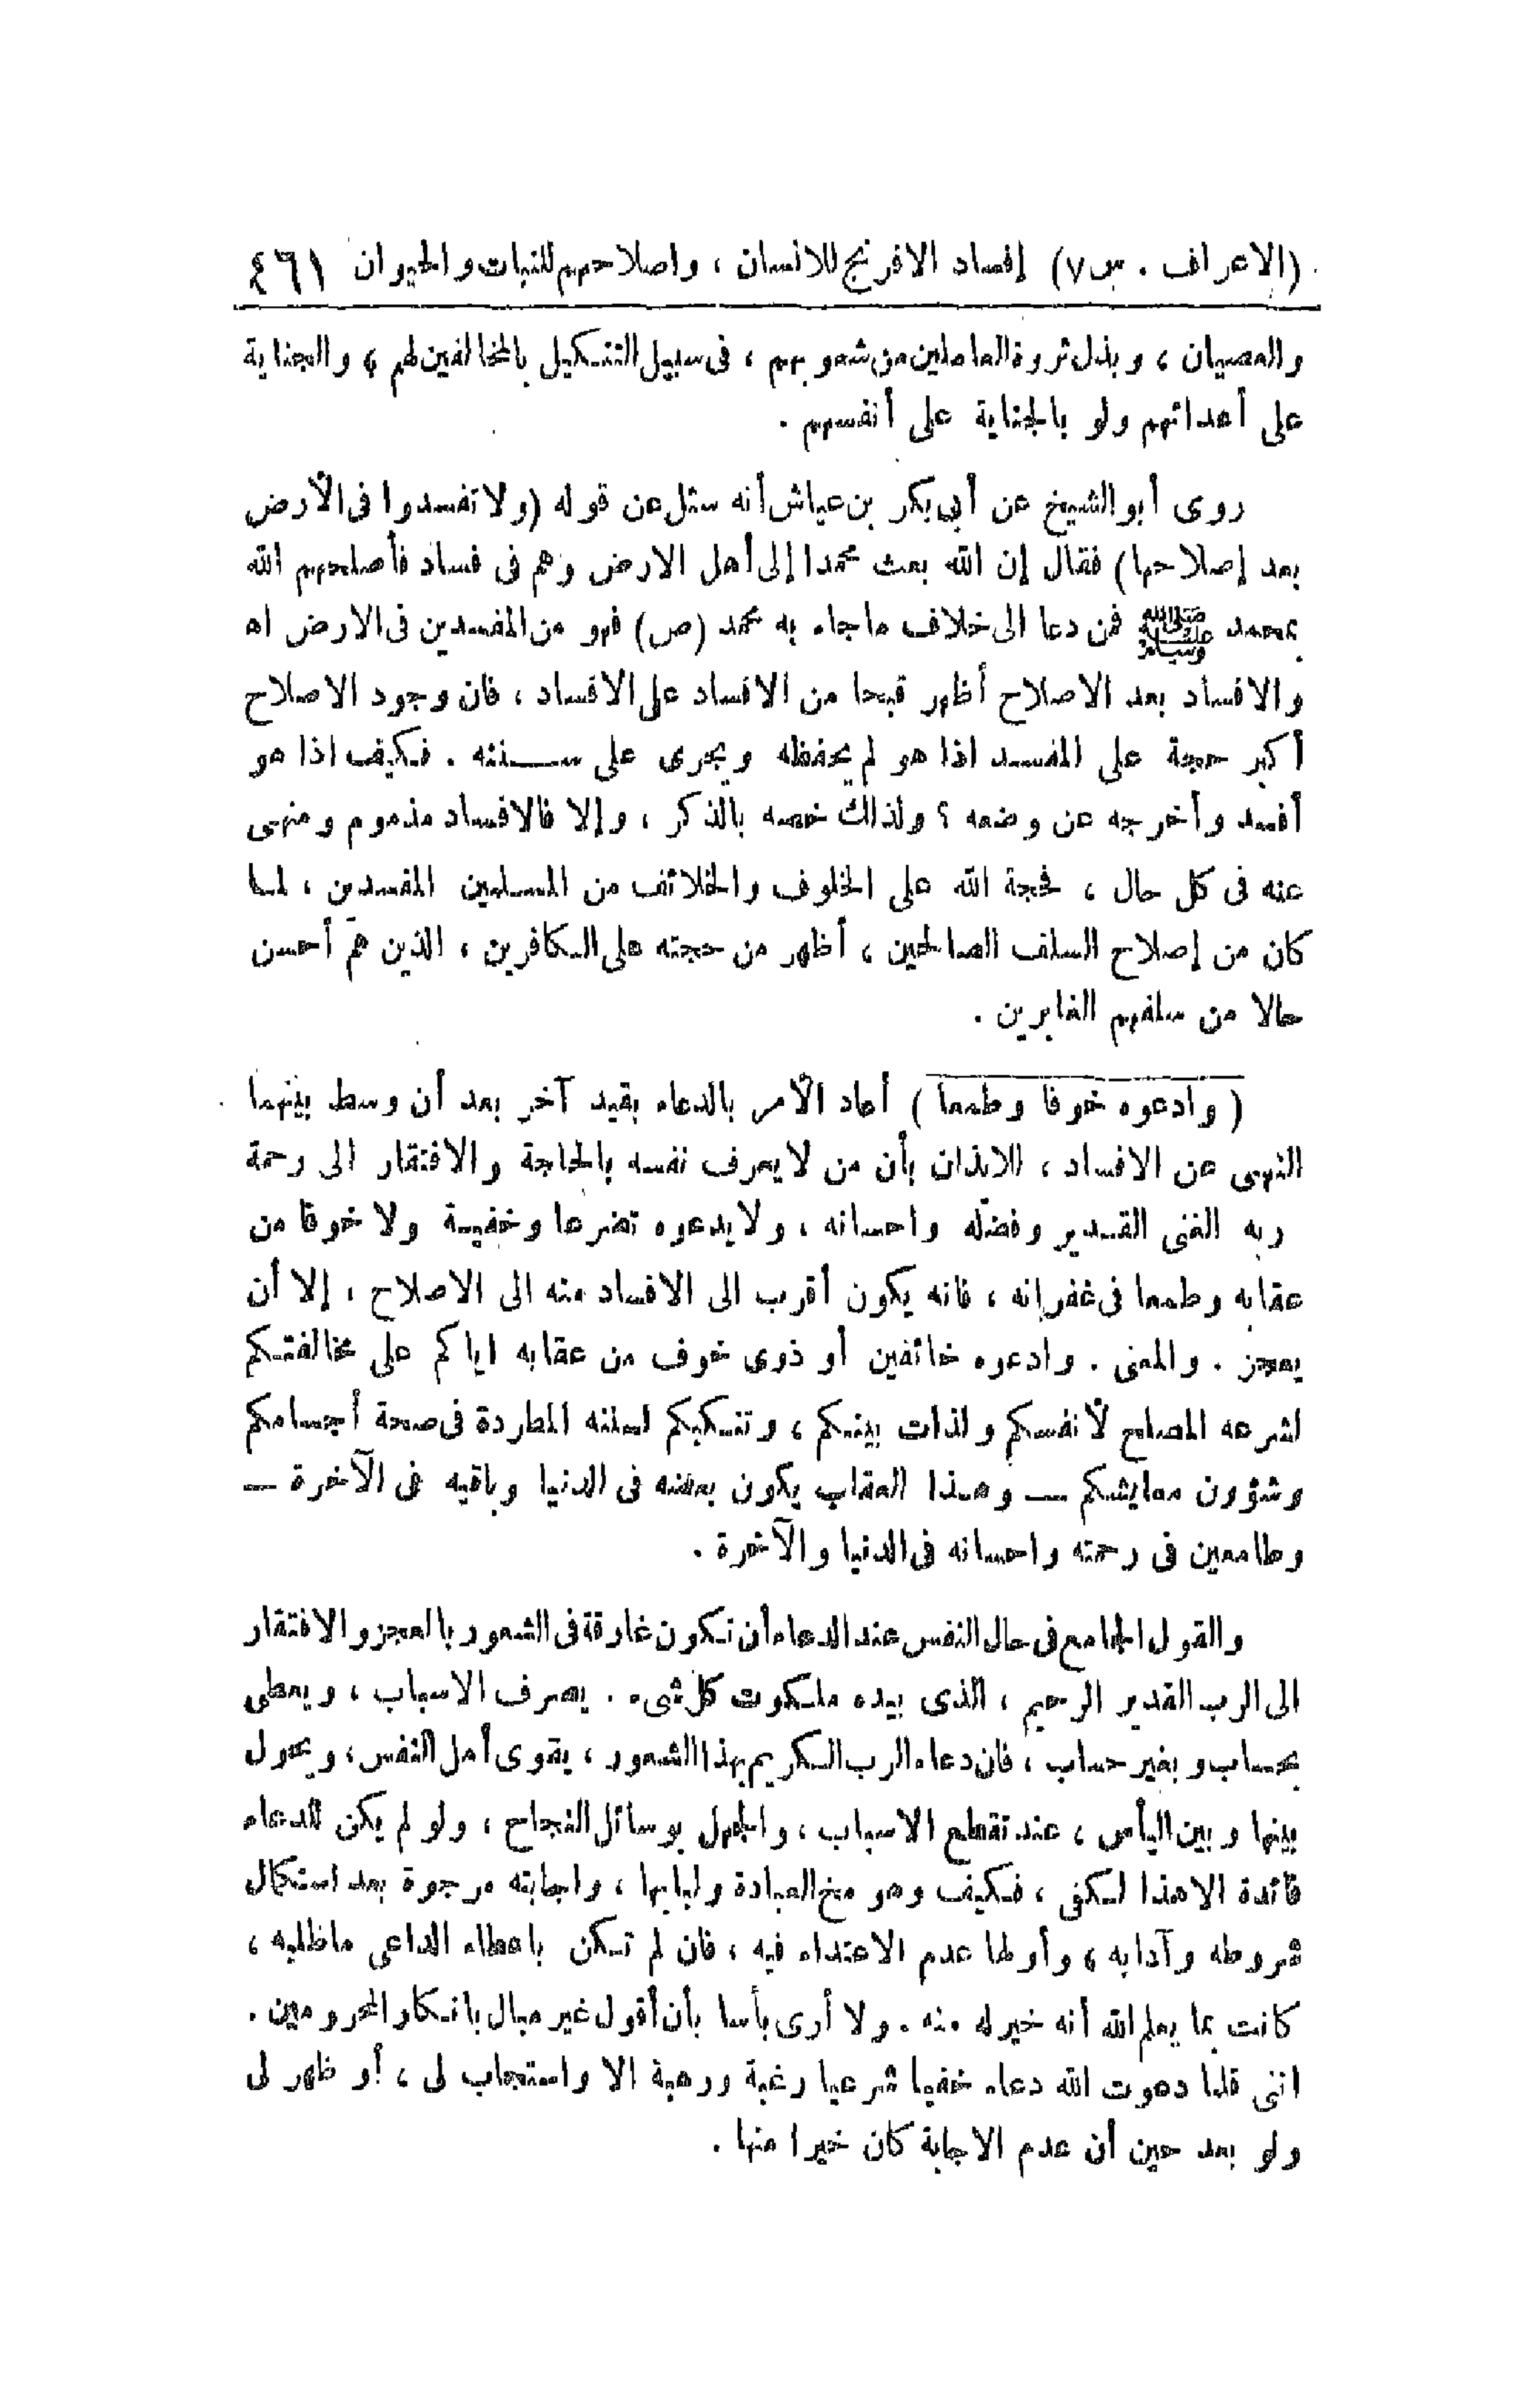 (الاعراف . س ٧) إفساد الافرنج للانسان ، واصلاحهم للنبات والحيوان ٤٦١
والعصيان ، وبذل ثروة العاملين من شعوبهم ، فى سبيل التنكيل بالمخالفين لهم ، والجناية
على أعدائهم ولو بالجناية على أنفسهم .
روى أبو الشيخ عن أبى بكر بن عياش أنه سئل عن قوله (ولا تفسدوا فى الأرض
بعد إصلاحها) فقال إن الله بعث محمدا إلى أهل الارض وهم فى فساد فأصلحهم الله
بمحمد ﷺ فمن دعا الى خلاف ماجاء به محمد (ص) فهو من المفسدين فى الارض اه
والافساد بعد الاصلاح أظهر قبحا من الافساد على الافساد ، فان وجود الاصلاح
أكبر حجة على المفسد اذا هو لم يحفظه ويجرى على سننه . فكيف اذا هو
أفسد وأخرجه عن وضعه ؟ ولذلك خصه بالذكر ، وإلا فالافساد مذموم ومنهى
عنه فى كل حال ، فحجة الله على الخلوف والخلائف من المسلمين المفسدين ، لما
كان من إصلاح السلف الصالحين ، أظهر من حجته على الكافرين ، الذين هم أحسن
حالا من سلفهم الغابرين .
( وادعوه خوفا وطمعا ) أعاد الأمر بالدعاء بقيد آخر بعد أن وسط بينهما
النهى عن الافساد ، للايذان بأن من لا يعرف نفسه بالحاجة والافتقار الى رحمة
ربه الغنى القدير وفضله واحسانه ، ولا يدعوه تضرعا وخفية ولا خوفا من
عقابه وطمعا فى غفرانه ، فانه يكون أقرب الى الافساد منه الى الاصلاح ، إلا أن
يعجز . والمعنى . وادعوه خائفين أو ذوى خوف من عقابه اياكم على مخالفتكم
لشرعه المصلح لأنفسكم ولذات بينكم ، وتنكبكم لسننه المطردة فى صحة أجسامكم
وشؤون معايشكم — وهذا العقاب يكون بعضه فى الدنيا وباقيه فى الآخرة —
وطامعين فى رحمته واحسانه فى الدنيا والآخرة .
والقول الجامع فى حال النفس عند الدعاء أن تكون غارقة فى الشعور بالعجز والافتقار
الى الرب القدير الرحيم ، الذى بيده ملكوت كل شىء . يصرف الاسباب ، ويعطى
بحساب وبغير حساب ، فان دعاء الرب الكريم بهذا الشعور ، يقوى أمل النفس ، ويحول
بينها وبين اليأس ، عند تقطع الاسباب ، والجهل بوسائل النجاح ، ولو لم يكن للدعاء
فائدة الا هذا لكفى ، فكيف وهو مخ العبادة ولبابها ، واجابته مرجوة بعد استكمال
شروطه وآدابه ، وأولها عدم الاعتداء فيه ، فان لم تكن باعطاء الداعى ماطلبه ،
كانت بما يعلم الله أنه خير له منه . ولا أرى بأسا بأن أقول غير مبال بانكار المحرومين .
اننى قلما دعوت الله دعاء خفيا شرعيا رغبة ورهبة الا واستجاب لى ، أو ظهر لى
ولو بعد حين أن عدم الاجابة كان خيرا منها .